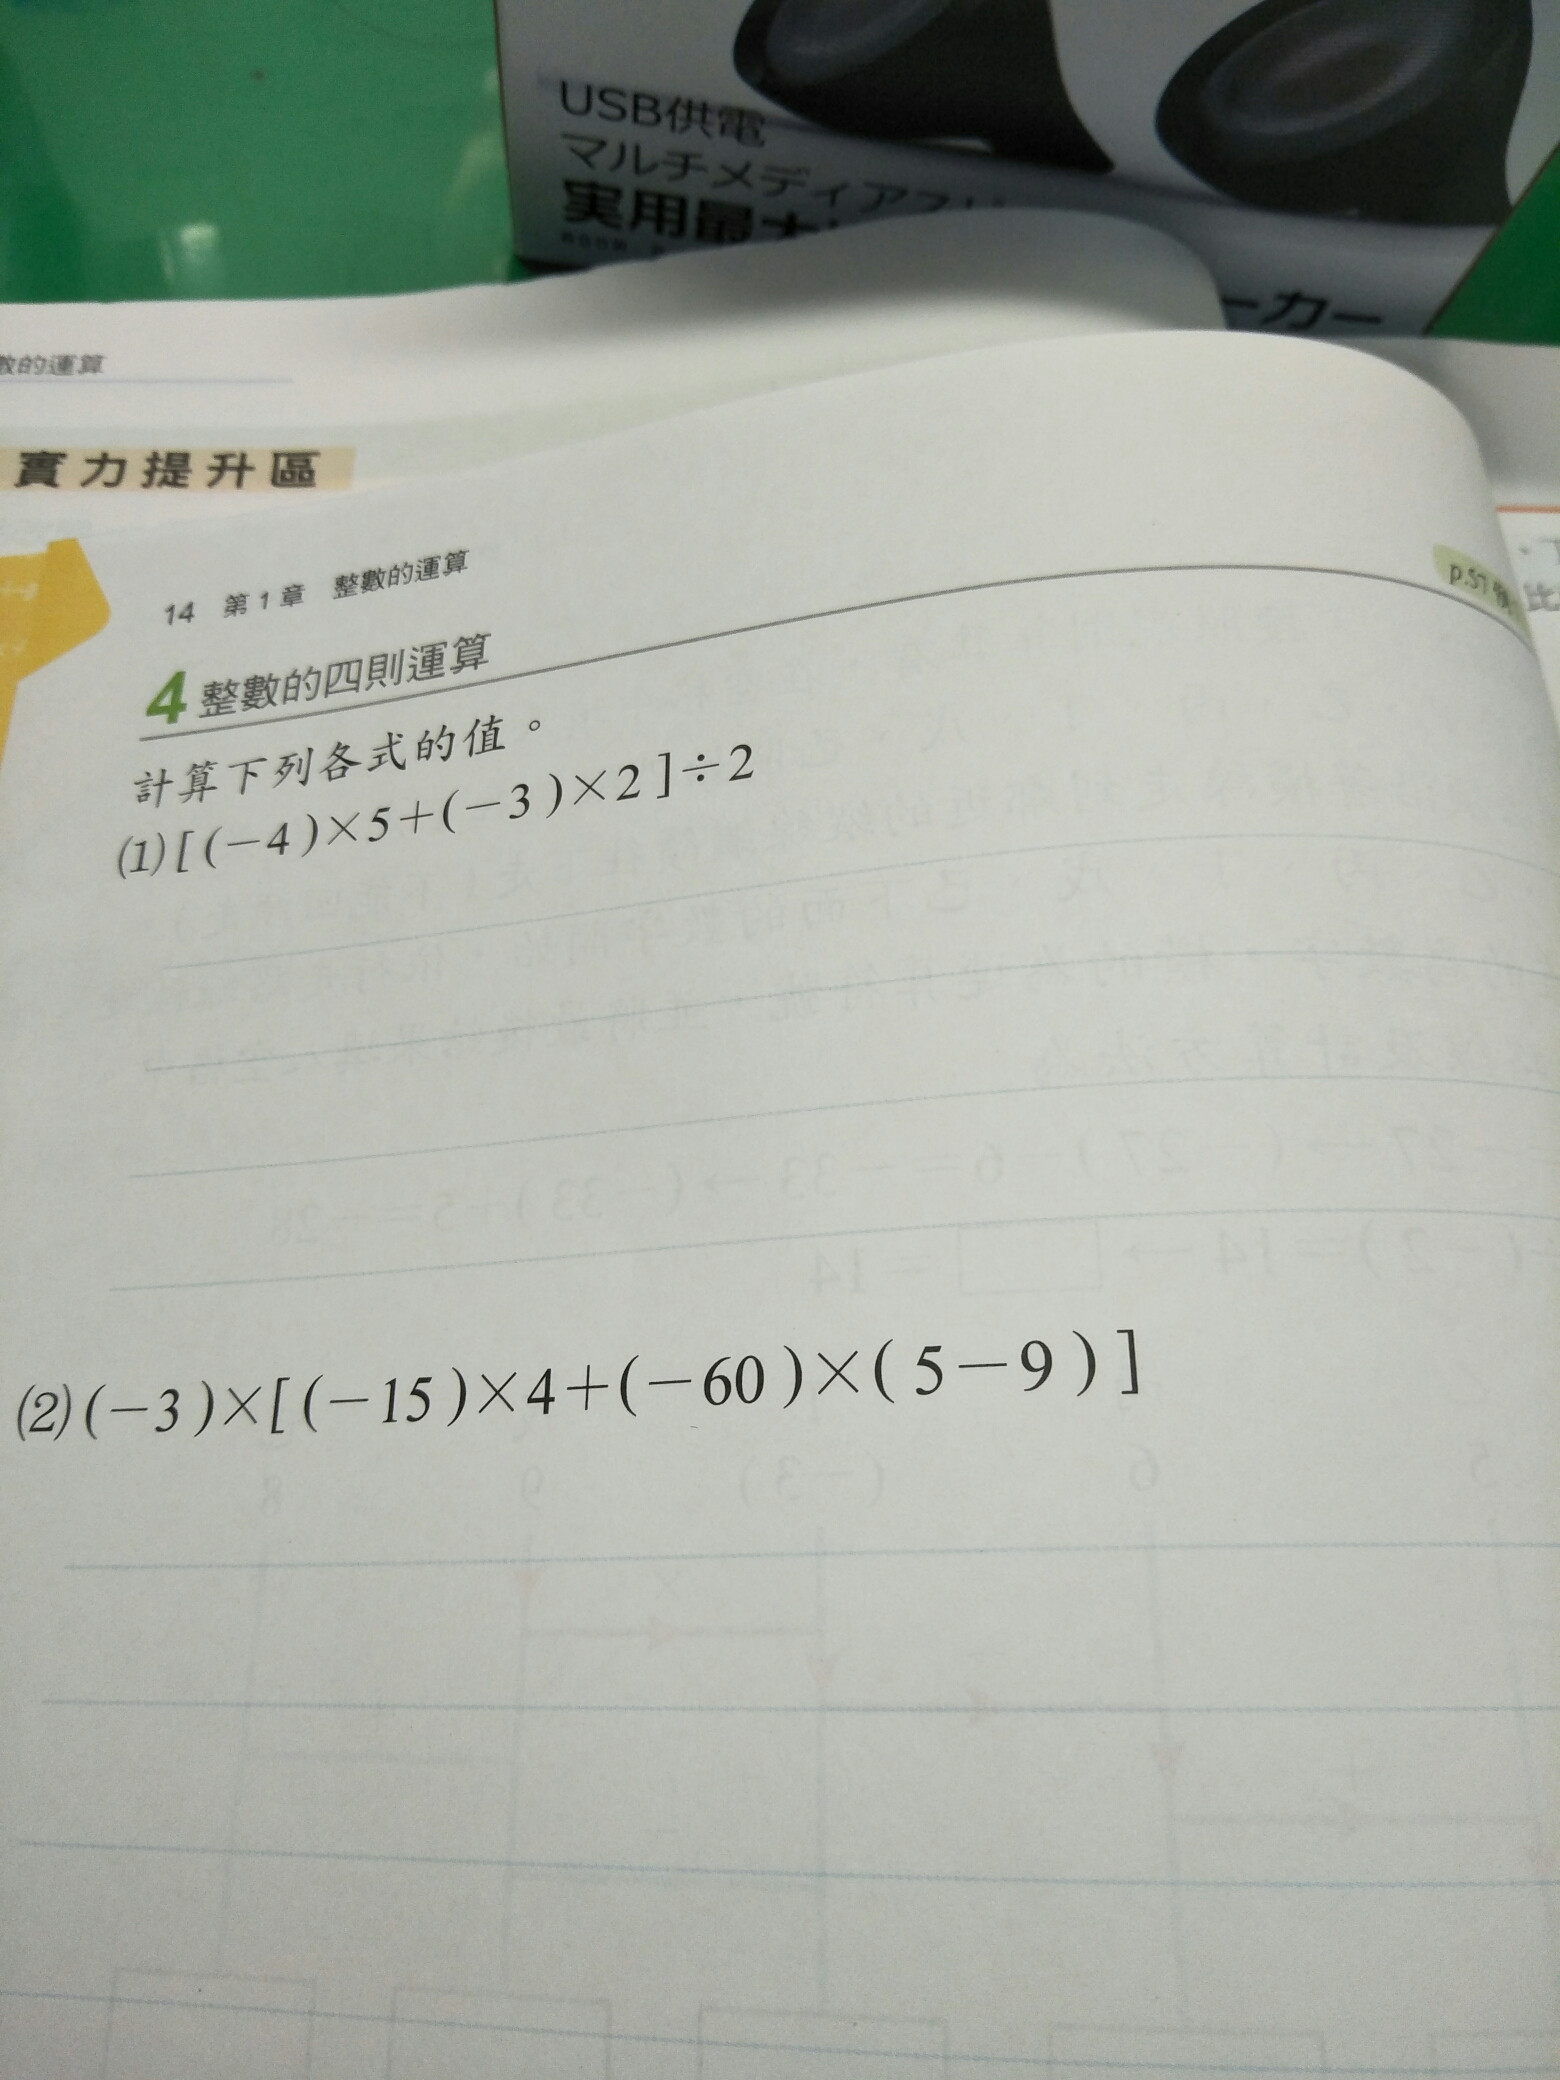 USB供電
マルチメディアスピ
実用最大
ーカー
數的運算
實力提升區
14 第1章 整數的運算
p.57
4 整數的四則運算
計算下列各式的值。
(1)[(-4)×5+(-3)×2]÷2
(2)(-3)×[(-15)×4+(-60)×(5-9)]